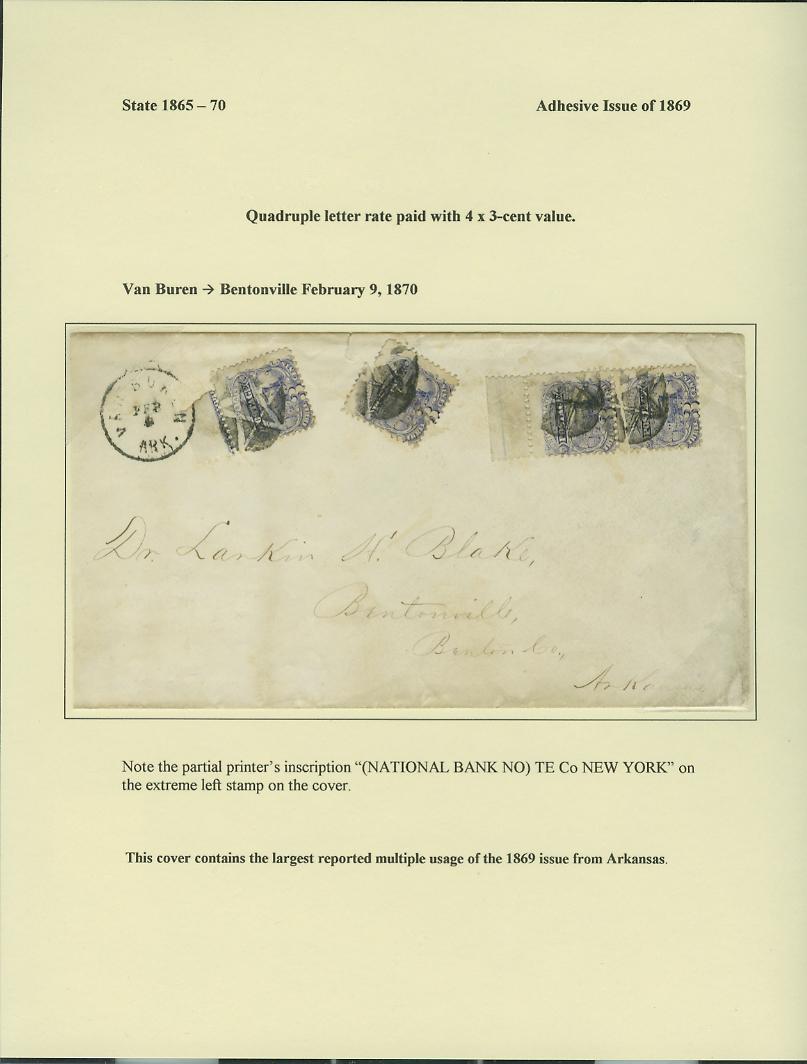 State 1865 – 70
Adhesive Issue of 1869
Quadruple letter rate paid with 4 x 3-cent value.
Van Buren → Bentonville February 9, 1870
VAN BUREN
FEB
9
ARK.
Dr. Larkin H. Blake,
Bentonville,
Benton Co.,
Arkansas
Note the partial printer's inscription “(NATIONAL BANK NO) TE Co NEW YORK” on
the extreme left stamp on the cover.
This cover contains the largest reported multiple usage of the 1869 issue from Arkansas.